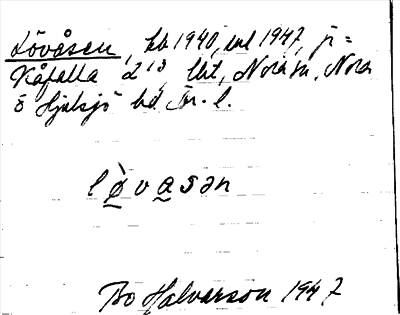 Lövåsen, hb 1940, enl 1947, jr =
Kåfalla 2¹³, Ukt, Nora sn, Nora
o Hjulsjö bd Ör. l.
lövasən
Bo Halvarson 1947